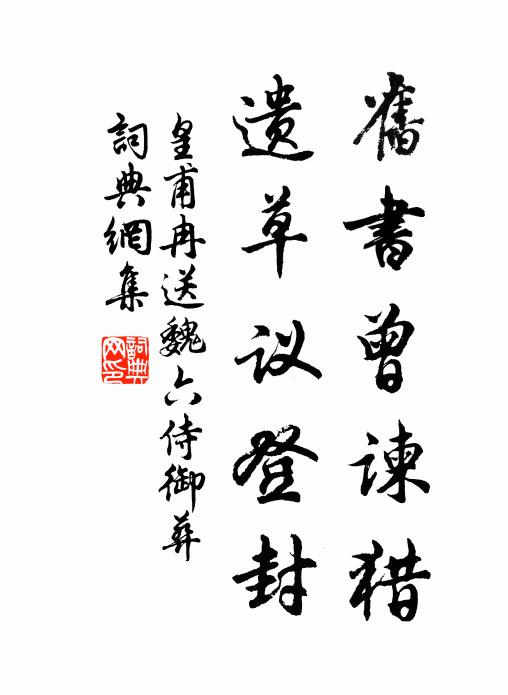 舊書曾諫猎
遗草议登封
皇甫冉送魏六侍御葬
詞典網集
詞典网印